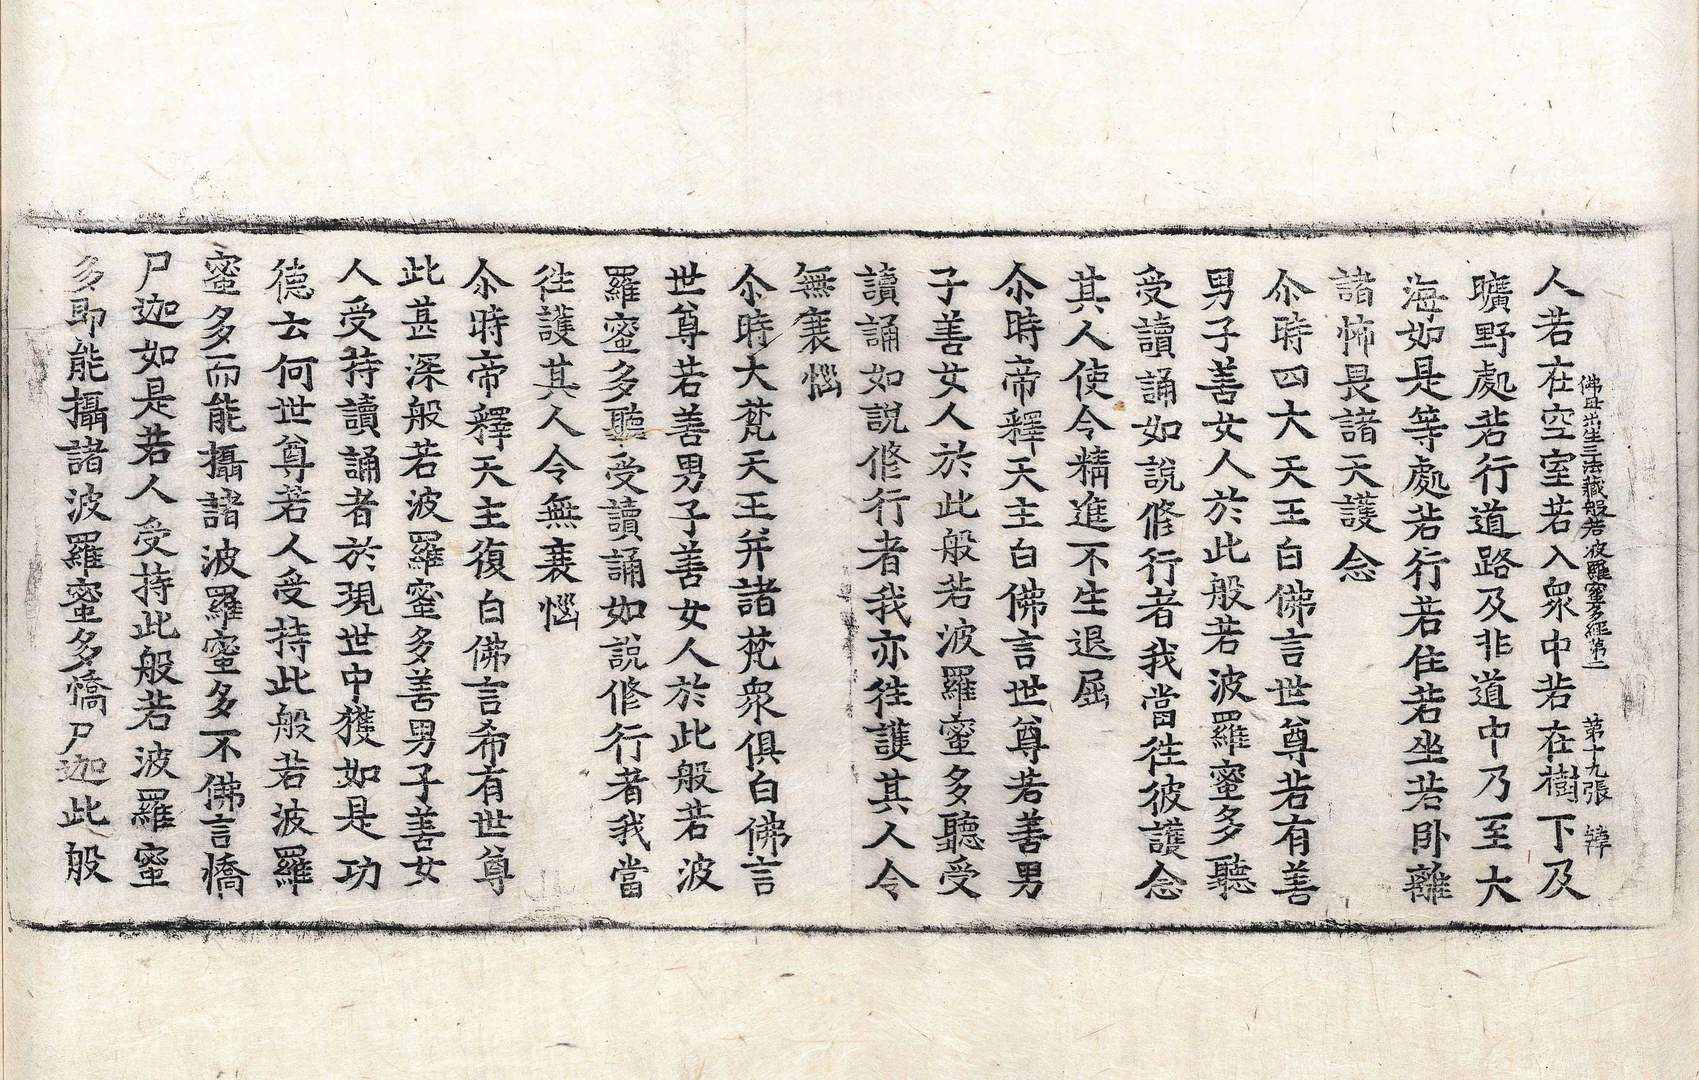 佛母出生三法藏般若波羅蜜多經第二　第十九張　韓
人若在空室若入衆中若在樹下及
曠野處若行道路及非道中乃至大
海如是等處若行若住若坐若卧離
諸怖畏諸天護念
尒時四大天王白佛言世尊若有善
男子善女人於此般若波羅蜜多聽
受讀誦如說修行者我當徃彼護念
其人使令精進不生退屈
尒時帝釋天主白佛言世尊若善男
子善女人於此般若波羅蜜多聽受
讀誦如說修行者我亦徃護其人令
無衰惱
尒時大梵天王并諸梵衆俱白佛言
世尊若善男子善女人於此般若波
羅蜜多聽受讀誦如說修行者我當
徃護其人令無衰惱
尒時帝釋天主復白佛言希有世尊
此甚深般若波羅蜜多善男子善女
人受持讀誦者於現世中獲如是功
德云何世尊若人受持此般若波羅
蜜多而能攝諸波羅蜜多不佛言憍
尸迦如是若人受持此般若波羅蜜
多即能攝諸波羅蜜多憍尸迦此般